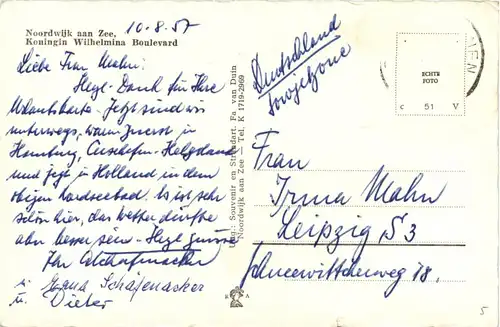 Noordwijk aan Zee,
Koningin Wilhelmina Boulevard
10.8.57
Liebe Frau Mahn!
Herzl. Dank für Ihre
Urlaubskarte. Jetzt sind wir
unterwegs, waren zuerst in
Hamburg, Cuxhafen - Helgoland
und jetzt in Holland in dem
obigen Nordseebad. Es ist sehr
schön hier, das Wetter dürfte
aber besser sein. Herzl. Grüsse
Ihr Schafnacker
u. Erna Schafenacker
u. Dieter
Uitg.: Souvenir en Strandart. Fa. van Duin
Noordwijk aan Zee — Tel. K 1719-2969
Deutschland
Sowjetzone
ECHTE
FOTO
C 51 V
Frau
Irma Mahn
Leipzig S3
Schneewittchenweg 18.
R A
5